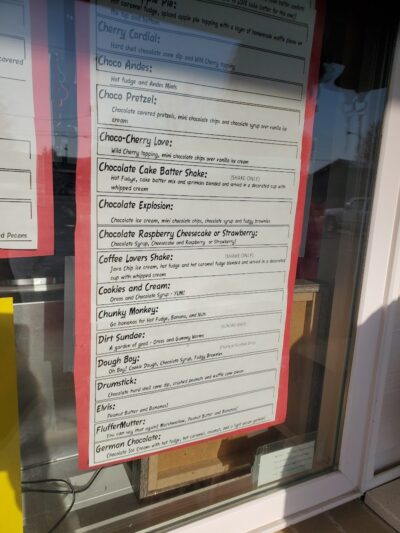 Apple Pie:
Hot caramel fudge, spiced apple pie topping with a layer of homemade waffle pieces on
the top and bottom
Cherry Cordial:
Hard shell chocolate cone dip and Wild Cherry topping
Choco Andes:
Hot fudge and Andes Mints
Choco Pretzel:
Chocolate covered pretzels, mini chocolate chips and chocolate syrup over vanilla ice
cream
Choco-Cherry Love:
Wild Cherry topping, mini chocolate chips over vanilla ice cream
Chocolate Cake Batter Shake: (SHAKE ONLY!)
Hot Fudge, cake batter mix and sprinkles blended and served in a decorated cup with
whipped cream
Chocolate Explosion:
Chocolate ice cream, mini chocolate chips, chocolate syrup and fudgy brownies
Chocolate Raspberry Cheesecake or Strawberry:
Chocolate Syrup, Cheesecake and Raspberry or Strawberry!
Coffee Lovers Shake: (SHAKE ONLY!)
Java Chip ice cream, hot fudge and hot caramel fudge blended and served in a decorated
cup with whipped cream
Cookies and Cream:
Oreos and Chocolate Syrup - YUM!
Chunky Monkey:
Go bananas for Hot Fudge, Banana, and Nuts
Dirt Sundae:
A garden of good - Oreos and Gummy Worms
Dough Boy:
Oh Boy! Cookie Dough, Chocolate Syrup, Fudgy Brownies
Drumstick:
Chocolate hard shell cone dip, crushed peanuts and waffle cone pieces
Elvis:
Peanut Butter and Bananas!
FlufferMutter:
You can say that again! Marshmallow, Peanut Butter and Bananas!
German Chocolate:
Chocolate Ice Cream with hot fudge, hot caramel, coconut, and a light pecan garnish!
covered
ed Pecans